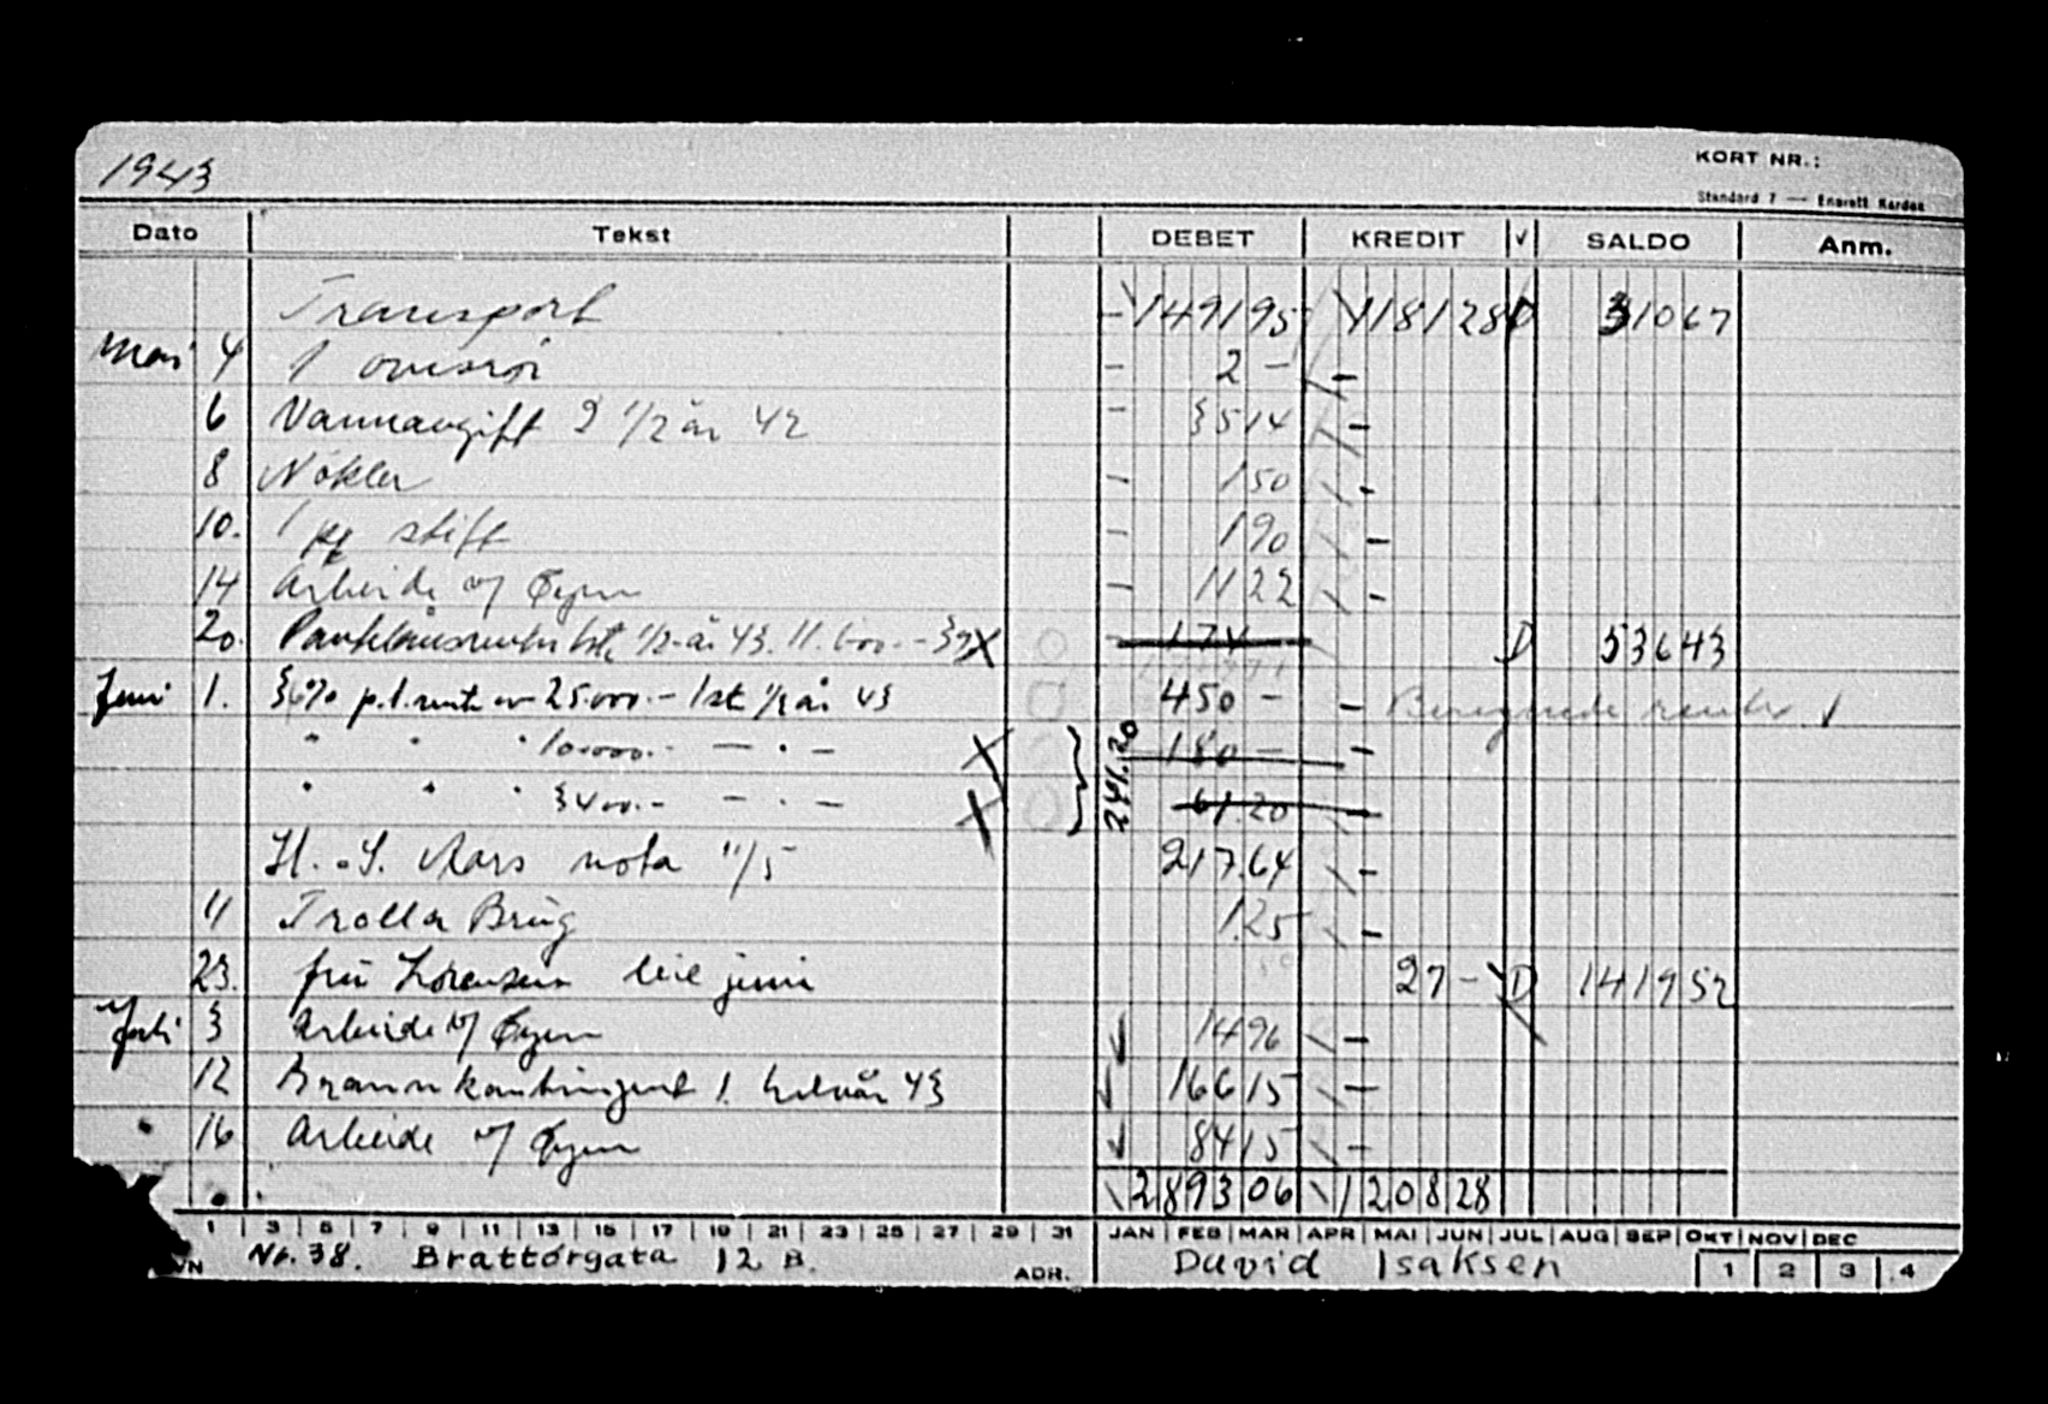 1943
KORT NR.:
Standard 7 — Enerett Kardex
Dato Tekst DEBET KREDIT √ SALDO Anm.
Transport - 149195 118128 D 31067
Mai 4 1 - 2 - -
6 Vannavgift 2 1/2 år 42 - 3514 -
8 Nøkler - 150 -
10. 1 pk stift - 190 -
14 Arbeide v/ Øyen - 1122 -
20. Pantelånsrenter 1ste 1/2-år 43. 11.600.- 3% X - 174 D 53643
Juni 1. 3,6% p.l.rente av 25.000.- 1ste 1/2 år 43 450 - - Beregnede renter √
" " " 10.000.- — " — X 180 - -
" " " 3400.- — " — X 61.20 -
241.20
H. S. Aars nota 11/5 217.64 -
11 Trolla Brug 1.25 -
23. fru Lorensen leie juni 27 - D 141952
Juli 3 Arbeide v/ Øyen 1496 -
12 Brannkontingent 1. halvår 43 16615 -
" 16 Arbeide v/ Øyen 8415 -
289306 120828
1 3 5 7 9 11 13 15 17 19 21 23 25 27 29 31 JAN FEB MAR APR MAI JUN JUL AUG SEP OKT NOV DEC
VN Nr. 38. Brattørgata 12 B. ADR. David Isaksen 1 2 3 4